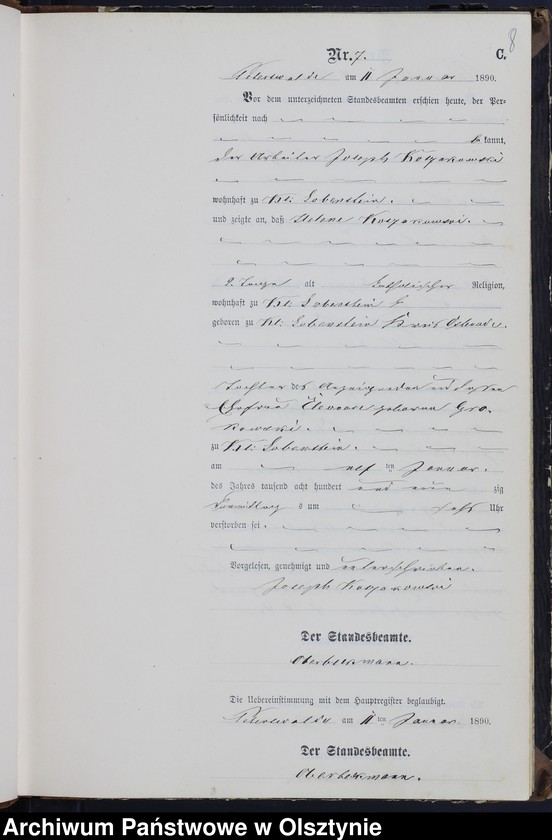 8
Nr. 7. C.
am 11 Januar 1890.
Vor dem unterzeichneten Standesbeamten erschien heute, der Per-
sönlichkeit nach
kannt,
der Arbeiter Joseph
wohnhaft zu Kl: Lobenstein.
und zeigte an, daß Helene
2. Tage alt katholischer Religion,
wohnhaft zu Kl: Lobenstein
geboren zu Kl: Lobenstein Kreis Osterode.
Tochter des Anzeigenden und dessen
Ehefrau geborene Gro-
kowski.
zu Kl: Lobenstein.
am elf ten Januar.
des Jahres tausend acht hundert und neun zig
Vormittags um sechs Uhr
verstorben sei.
Vorgelesen, genehmigt und unterschrieben.
Joseph
Der Standesbeamte.
Oberbeckmann.
Die Uebereinstimmung mit dem Hauptregister beglaubigt.
am 11 ten Januar 1890.
Der Standesbeamte.
Oberbeckmann.
Archiwum Państwowe w Olsztynie